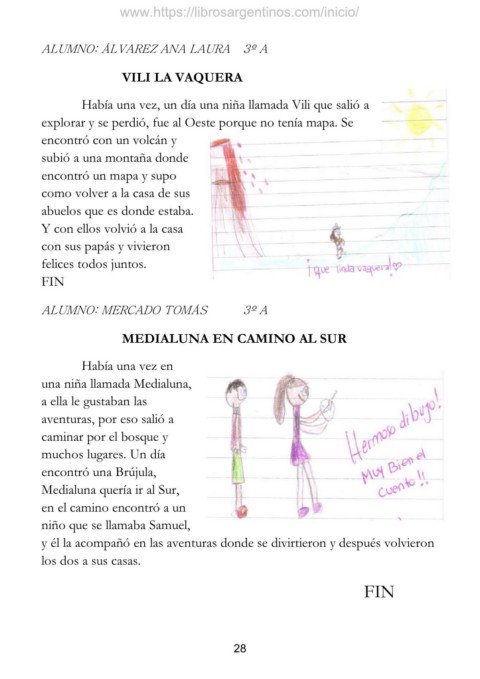 www.https://librosargentinos.com/inicio/
ALUMNO: ÁLVAREZ ANA LAURA 3º A
VILI LA VAQUERA
Había una vez, un día una niña llamada Vili que salió a
explorar y se perdió, fue al Oeste porque no tenía mapa. Se
encontró con un volcán y
subió a una montaña donde
encontró un mapa y supo
como volver a la casa de sus
abuelos que es donde estaba.
Y con ellos volvió a la casa
con sus papás y vivieron
felices todos juntos.
FIN
¡que linda vaquera!
ALUMNO: MERCADO TOMÁS 3º A
MEDIALUNA EN CAMINO AL SUR
Había una vez en
una niña llamada Medialuna,
a ella le gustaban las
aventuras, por eso salió a
caminar por el bosque y
muchos lugares. Un día
encontró una Brújula,
Medialuna quería ir al Sur,
en el camino encontró a un
niño que se llamaba Samuel,
y él la acompañó en las aventuras donde se divirtieron y después volvieron
los dos a sus casas.
Hermoso dibujo!
MUY BIEN el
cuento!!
FIN
28